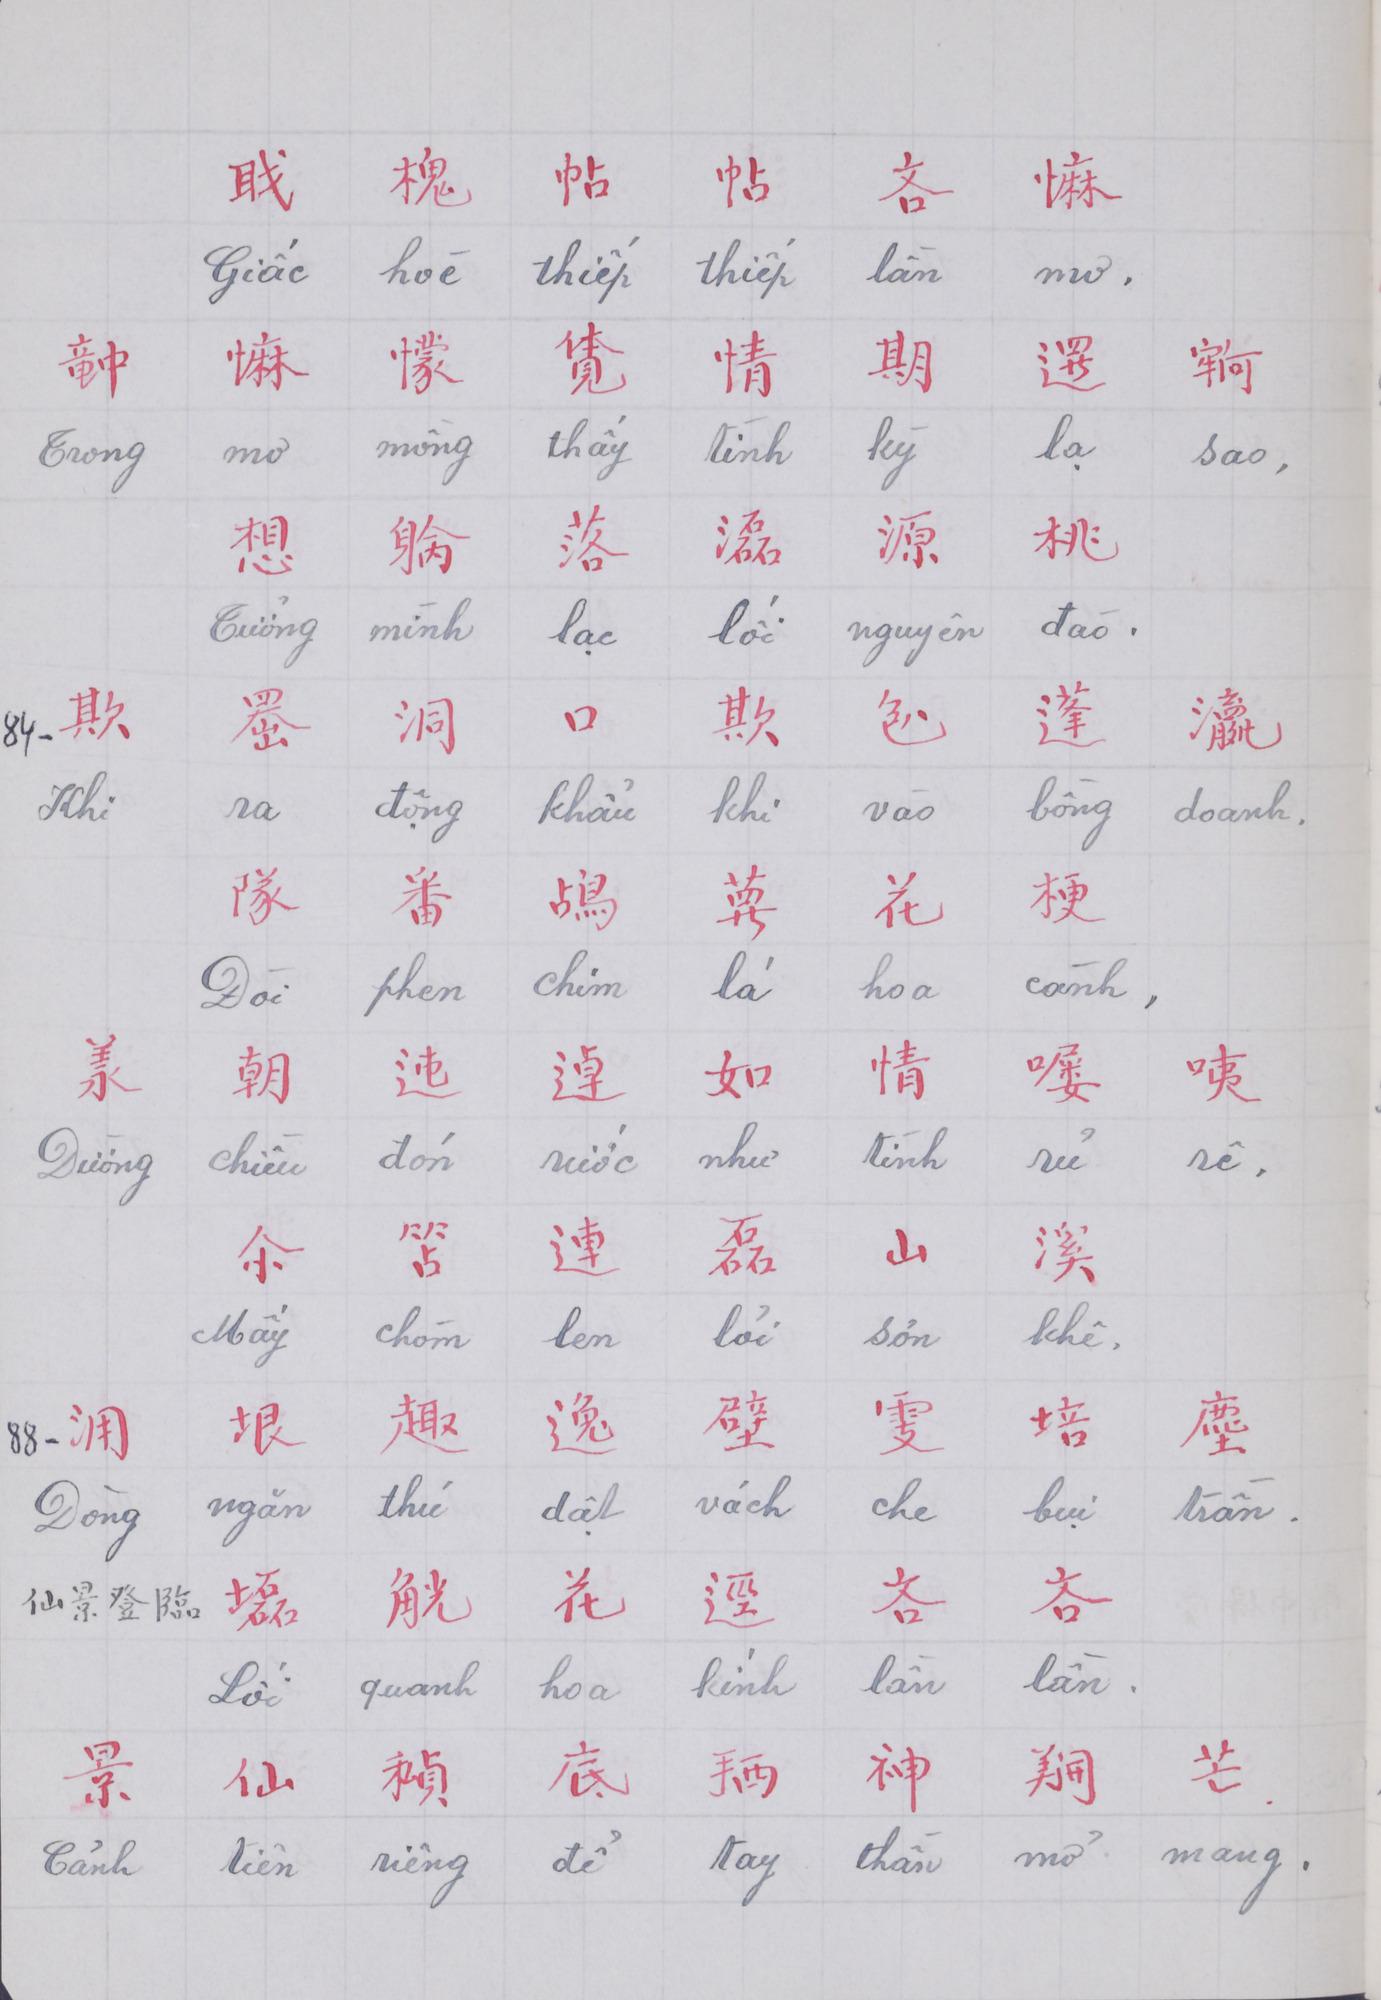 聀 槐 帖 帖 吝 㦄
Giấc hoè thiếp thiếp lần mơ.
𥪝 㦄 懞 覺 情 期 邏 𡫡
Trong mơ mòng thấy tình kỳ lạ sao,
想 躺 落 磊 源 桃
Tưởng mình lạc lối nguyên đào.
84- 欺 𦋦 洞 口 欺 𠓨 蓬 瀛
Khi ra động khẩu khi vào bồng doanh.
隊 番 鴣 蘿 花 梗
Đòi phen chim lá hoa cành,
羕 朝 迍 逴 如 情 嘍 咦
Dường chiều đón rước như tình rủ rê.
尒 笘 連 磊 山 溪
Mấy chòm len lỏi sơn khê.
88- 𣳔 垠 趣 逸 壁 雯 培 塵
Dòng ngăn thú dật vách che bụi trần.
仙景登臨 𡓃 觥 花 逕 吝 吝
Lối quanh hoa kính lần lần.
景 仙 𥢅 底 𢬣 神 𨷑 芒.
Cảnh tiên riêng để tay thần mở mang.